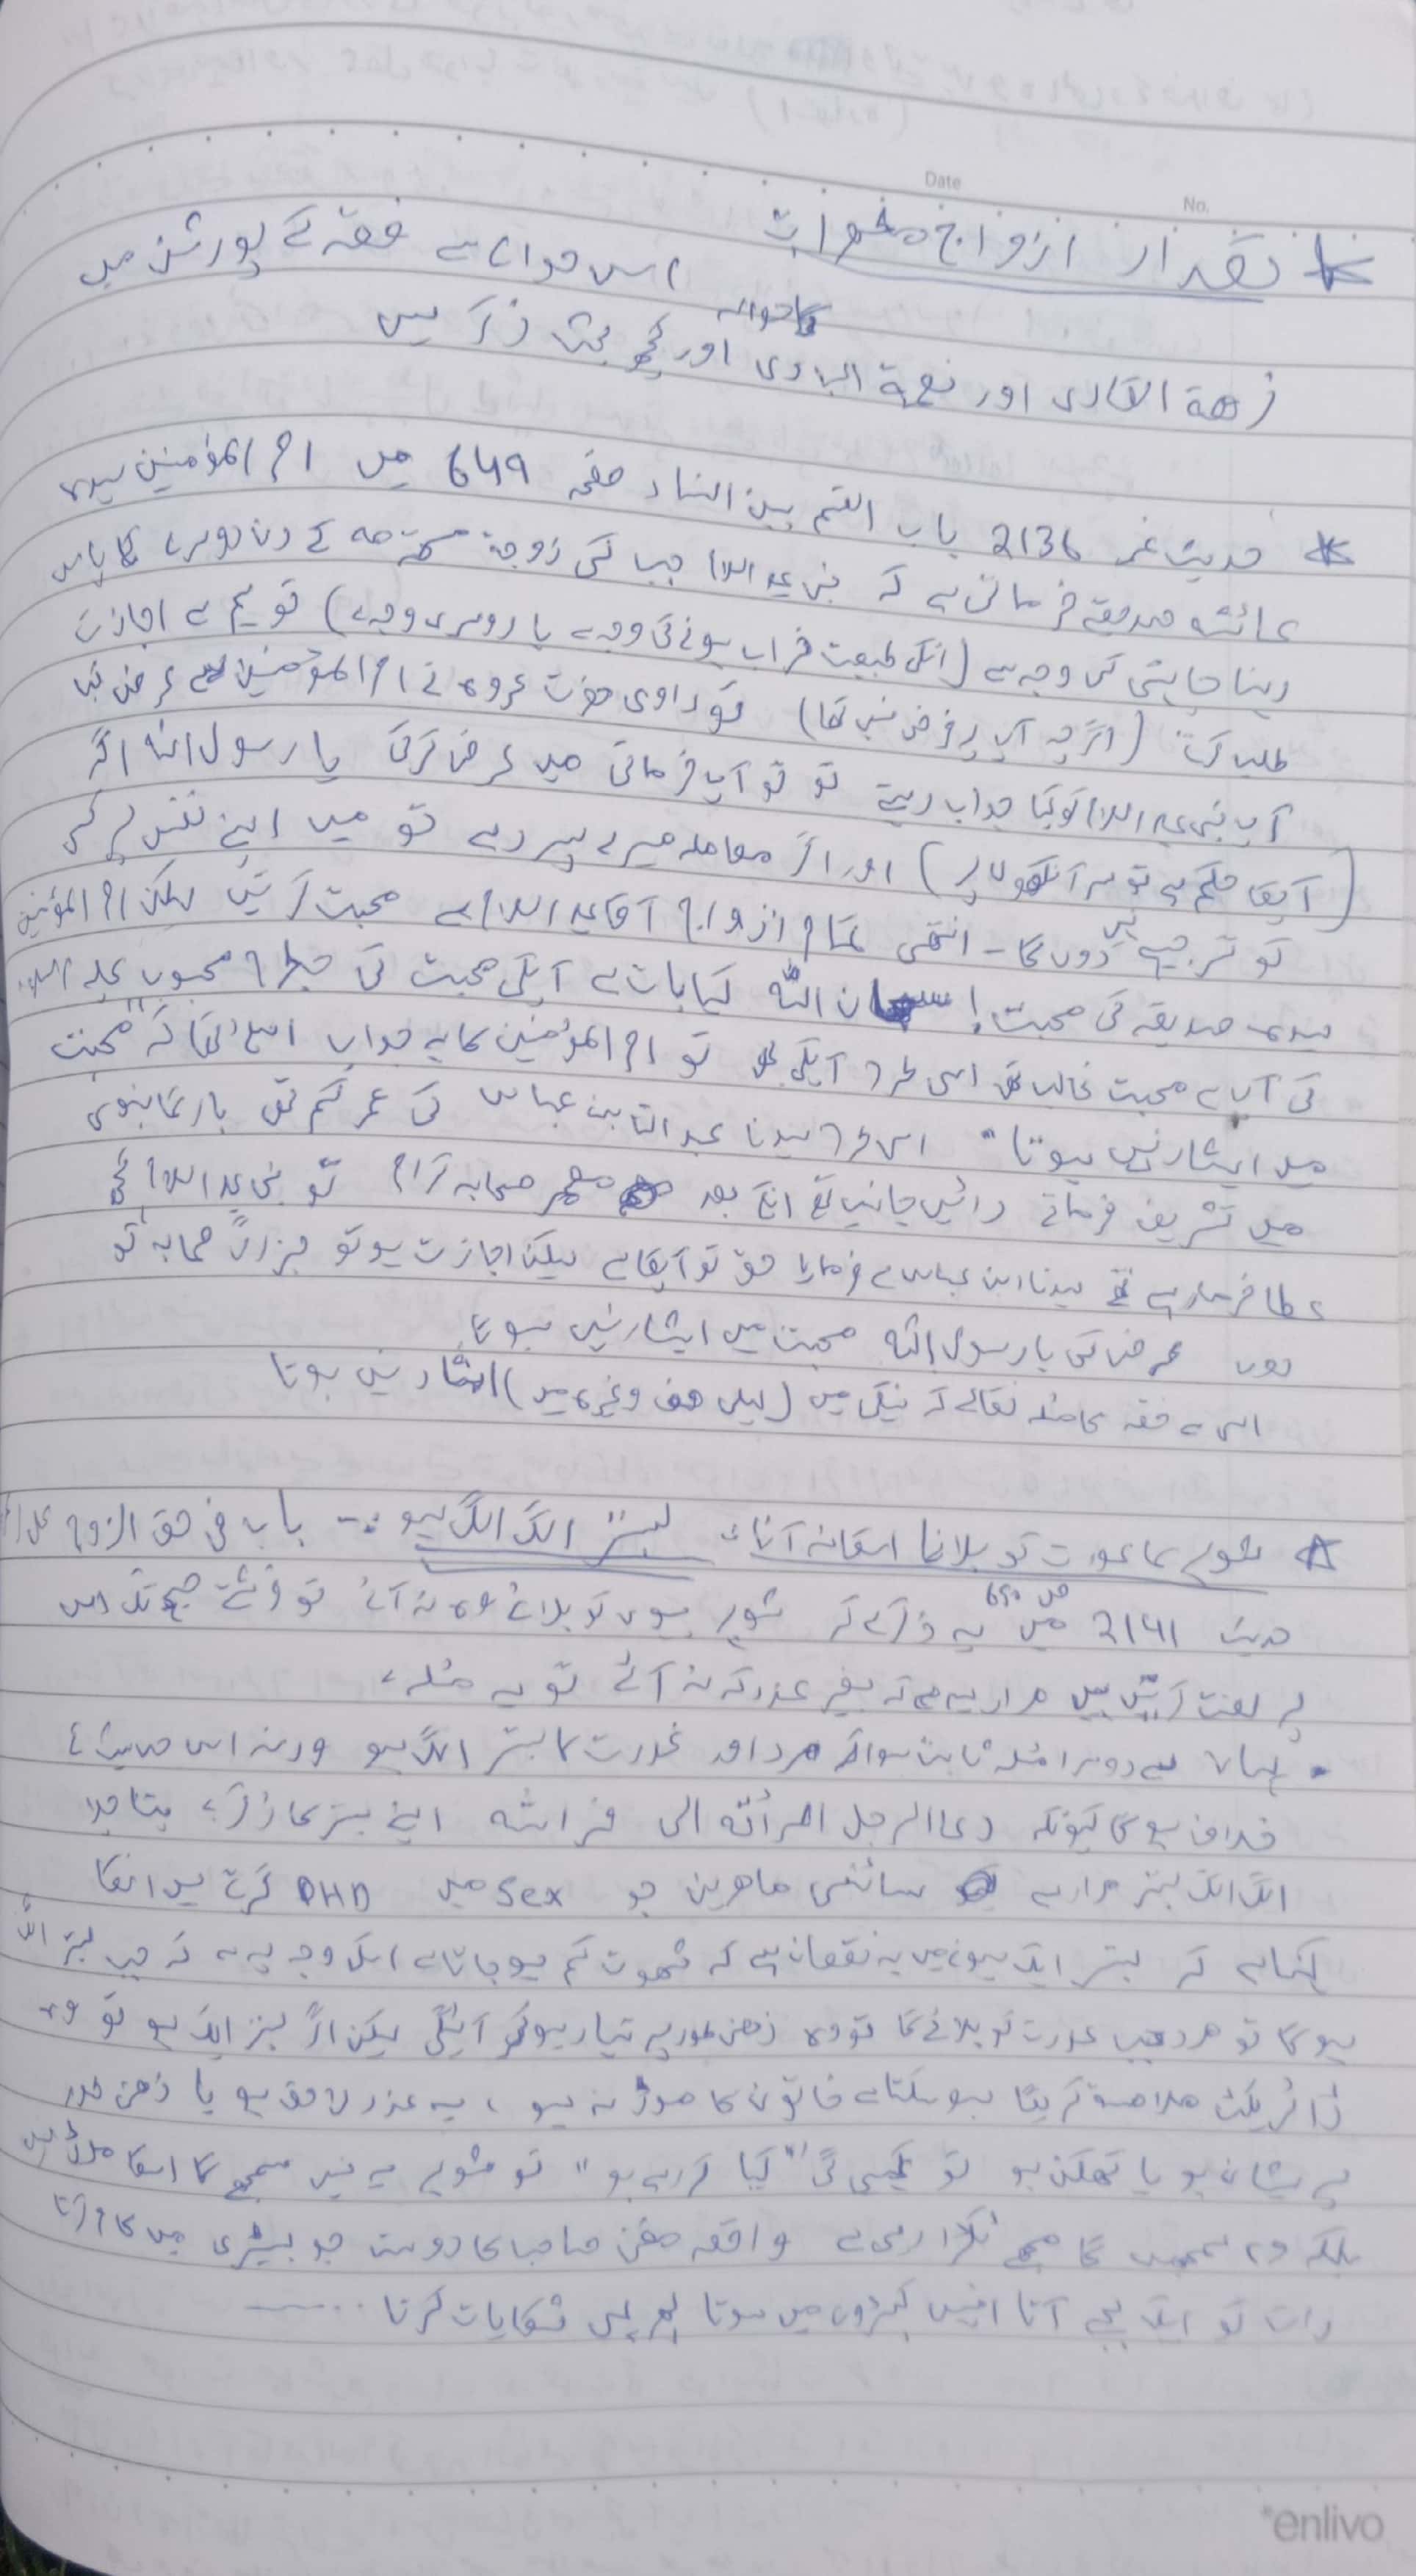 Date
No.
* تعداد ازواج مطہرات اس حوالے سے فقہ کے پورشن میں
نزھة القاری اور نعمة الباری کا حوالہ اور کچھ بحث ذکر ہیں
* حدیث نمبر 2136 باب القسم بین النساء صفحہ 649 میں ام المؤمنین سیدہ
عائشہ صدیقہ فرماتی ہے کہ نبی علیہ السلام جب کسی زوجۃ محترمہ کے دن دوسرے کا پاس
رہنا چاہتی کی وجہ سے (انکی طبیعت خراب ہونے کی وجہ سے یا دوسری وجہ سے) تو ہم سے اجازت
طلب کرتے (اگرچہ آپ پر فرض نہیں تھا) تو راوی حضرت عروہ نے ام المؤمنین سے عرض کیا
آپ نبی علیہ السلام کو کیا جواب دیتے تو تو آپ فرماتی میں عرض کرتی یا رسول اللہ اگر
(آپکا حکم ہے تو سر آنکھوں پر) اور اگر معاملہ میرے سپرد ہے تو میں اپنے نفس پر کسی
کو ترجیح نہیں دوں گا۔ انتھی تمام ازواج آقا علیہ السلام سے محبت کرتیں لیکن ام المؤمنین
سیدہ صدیقہ کی محبت! سبحان اللہ کیا بات ہے آپکی محبت کی جسطرح محبوب علیہ السلام
کی آپ سے محبت غالب تھی اسی طرح آپکی تو ام المؤمنین کا یہ جواب اسلئے تھا کہ "محبت
میں ایثار نہیں ہوتا" اسی طرح سیدنا عبد اللہ بن عباس کی عمر کم تھی بارگاہ نبوی
میں تشریف فرماتے دائیں جانب تھے انکے بعد معمر صحابہ کرام تو نبی علیہ السلام کچھ
عطا فرما رہے تھے سیدنا ابن عباس سے فرمایا حق تو آپکا ہے لیکن اجازت ہو تو بزرگ صحابہ کو
دوں عرض کی یا رسول اللہ محبت میں ایثار نہیں ہوتا
اس سے فقہ کا مسئلہ نکالے کہ نیکی میں (پہلی صف وغیرہ میں) ایثار نہیں ہوتا
* شوہر کا عورت کو بلانا اسکا نہ آنا، بستر الگ الگ ہو :- باب فی حق الزوج علی
حدیث 2141 میں ص 650 یہ ذکر ہے کہ شوہر بیوی کو بلائے وہ نہ آئے تو فرشتے صبح تک اس
پر لعنت کرتے ہیں مراد یہ ہے کہ بغیر عذر کہ نہ آئے تو یہ مسئلہ ہے
• یہاں سے دوسرا مسئلہ ثابت ہوا کہ مرد اور عورت کا بستر الگ ہو ورنہ اس حدیث کے
خلاف ہوگا کیونکہ دعا الرجل امرأته الی فراشه اپنے بستر کا ذکر ہے پتا چلا
الگ الگ بستر مراد ہے سائنسی ماھرین جو sex میں PHD کرتے ہیں انکا
کہنا ہے کہ بستر ایک ہونے میں یہ نقصان ہے کہ شھوت کم ہو جاتا ہے اسکی وجہ یہ ہے کہ جب بستر الگ
ہوگا تو مرد جب عورت کو بلائے گا تو وہ ذھنی طور پہ تیار ہو کر آئیگی لیکن اگر بستر ایک ہو تو وہ
ڈائریکٹ ملامسۃ کریگا ہو سکتا ہے خاتون کا موڈ نہ ہو، یہ عذر لاحق ہو یا ذھنی طور
پریشان ہو یا تھکن ہو تو کہیں گی "کیا کر رہے ہو" تو شوہر یہ نہیں سمجھے گا اسکا موڈ نہیں
بلکہ وہ سمجھیں گا مجھے ٹھکرا رہی ہے واقعہ مفتی صاحب کا دوست جو بیکری میں کام کرتا
رات کو ایک بجے آتا انہیں کپڑوں میں سوتا پھر یہی شکایات کرتا ......
enlivo